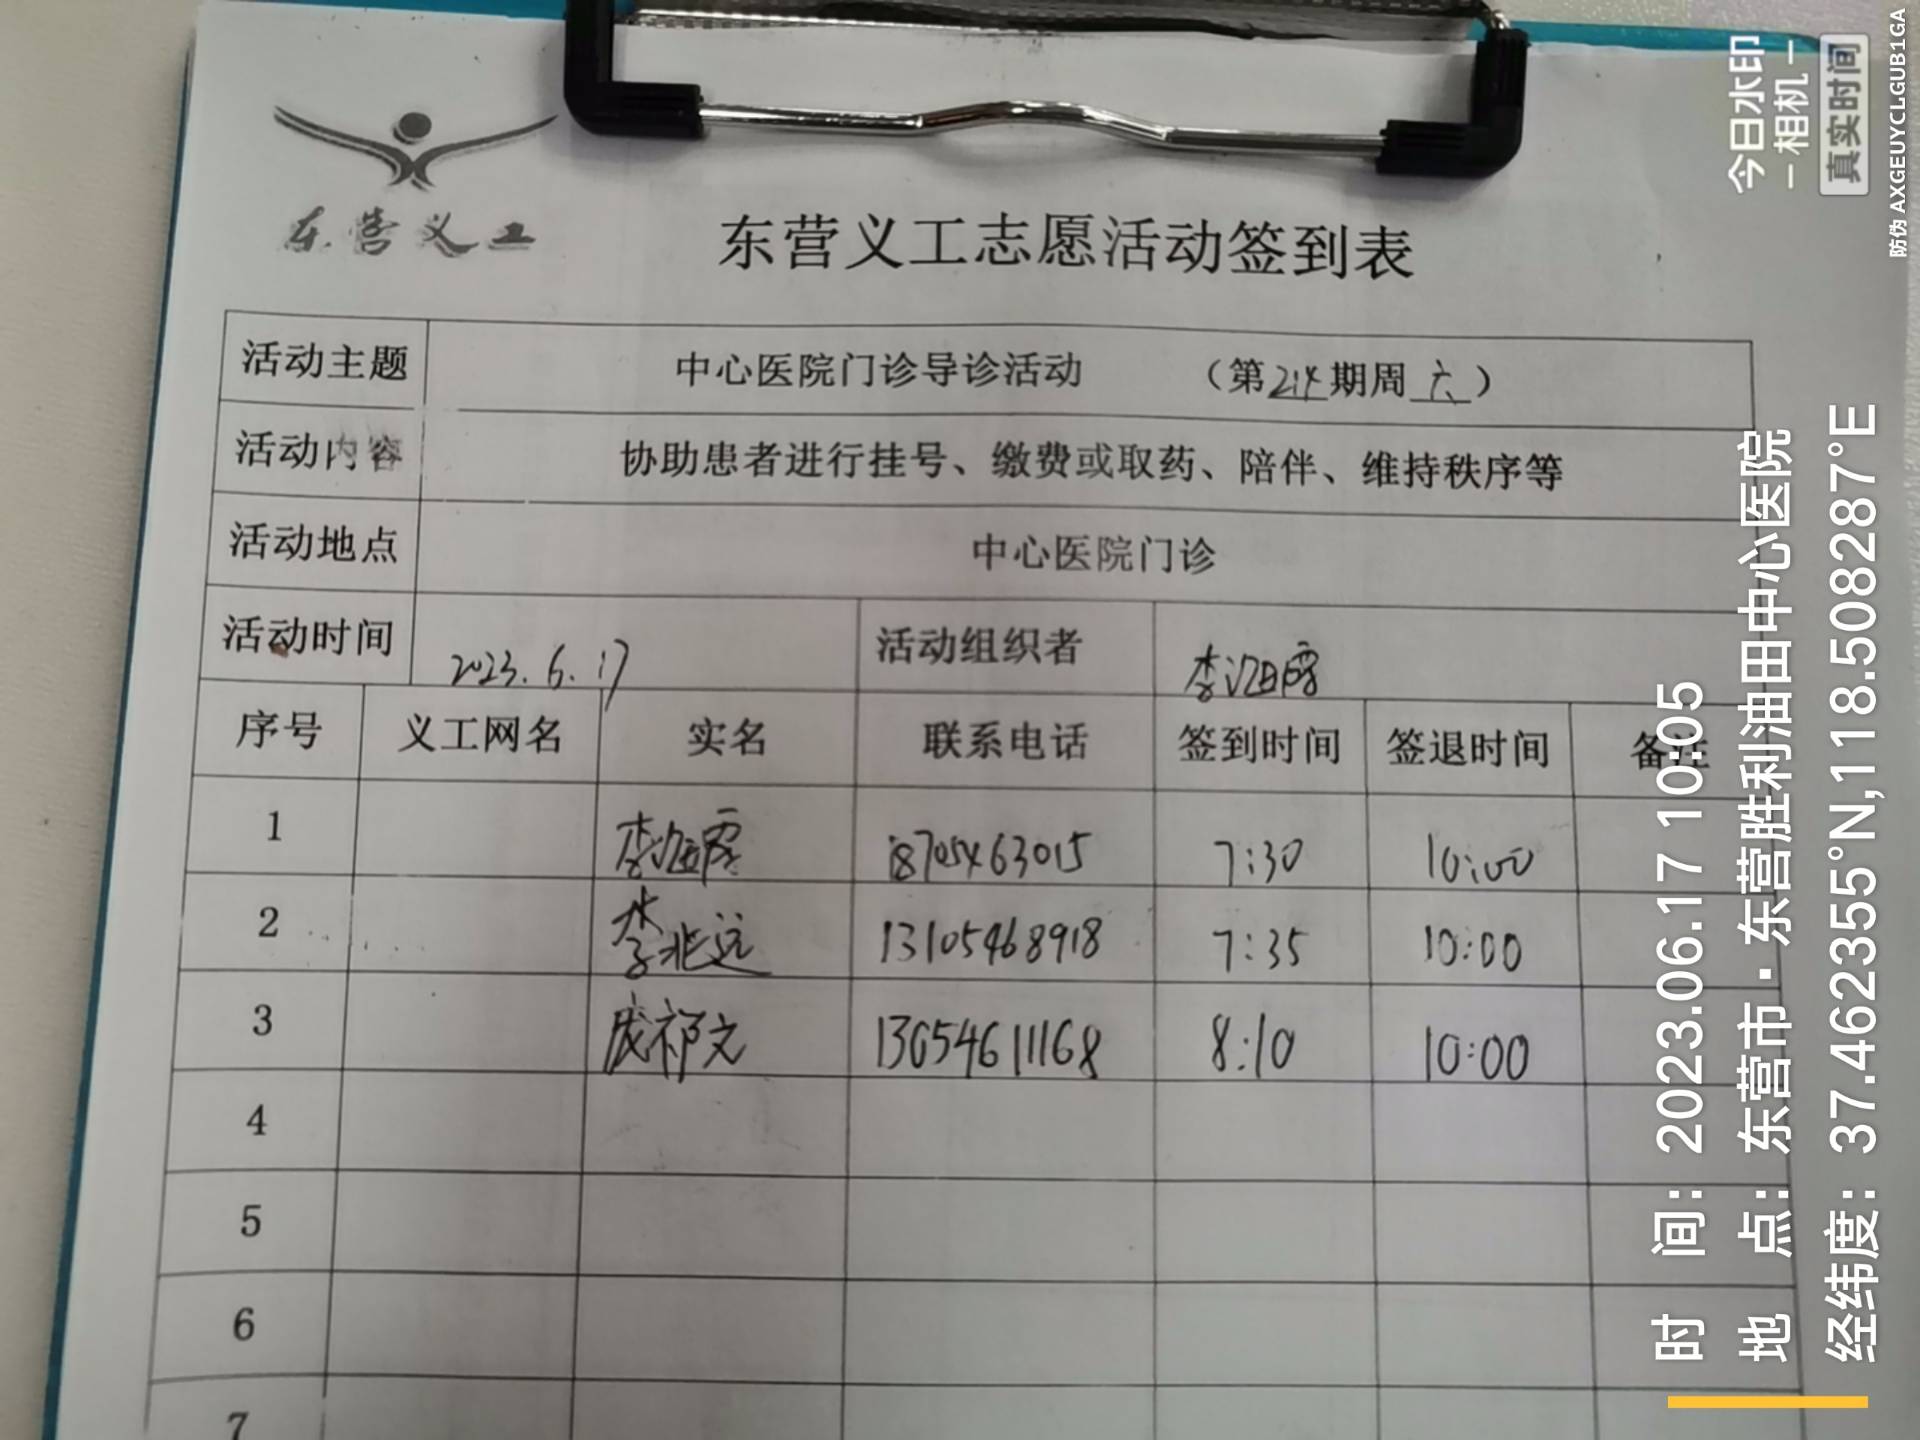 东营义工
东营义工志愿活动签到表
活动主题 中心医院门诊导诊活动 （第214期周六）
活动内容 协助患者进行挂号、缴费或取药、陪伴、维持秩序等
活动地点 中心医院门诊
活动时间 2023.6.17 活动组织者 李
序号 义工网名 实名 联系电话 签到时间 签退时间 备注
1 李 18705463015 7:30 10:00
2 李兆远 13105468918 7:35 10:00
3 文 13054611168 8:10 10:00
4
5
6
7
今日水印
相机
真实时间
防伪 AXGEUYCLGUB1GA
时 间：2023.06.17 10:05
地 点：东营市·东营胜利油田中心医院
经纬度：37.462355°N,118.508287°E